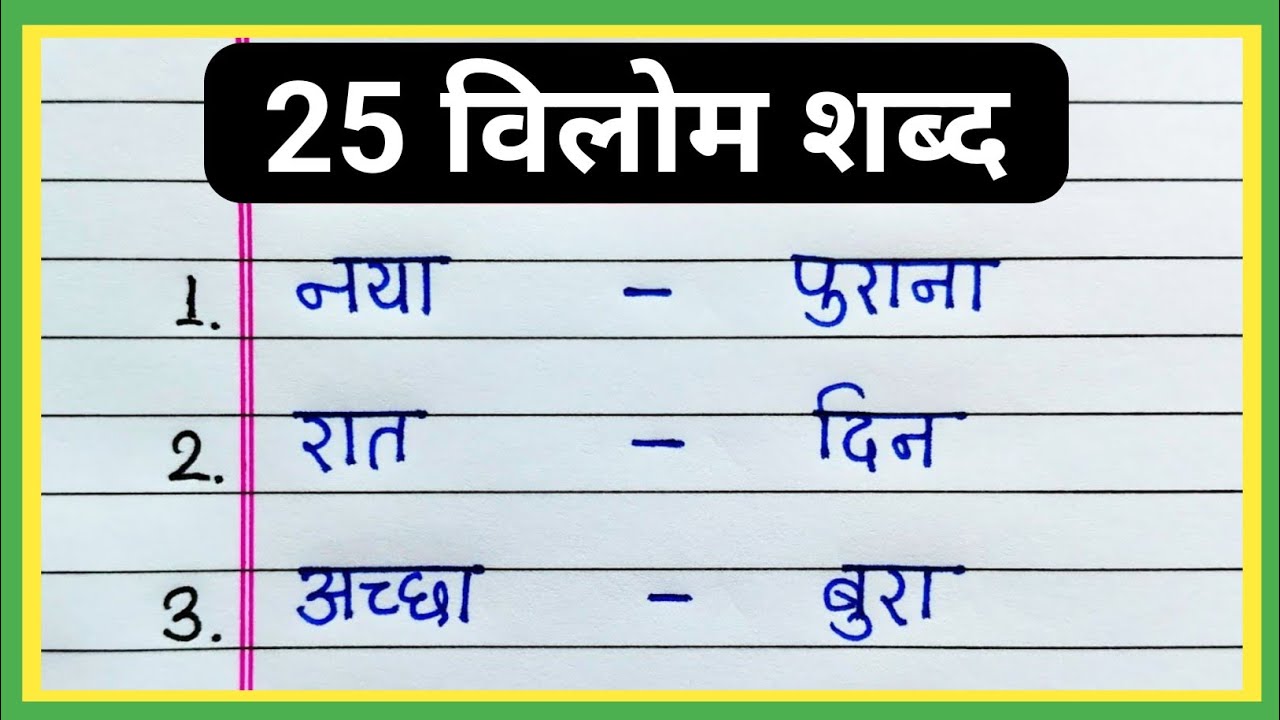 25 विलोम शब्द
1. नया - पुराना
2. रात - दिन
3. अच्छा - बुरा